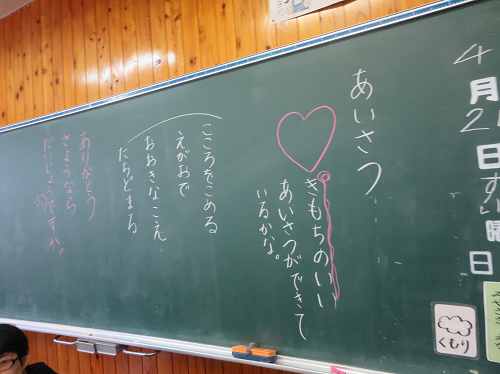 4
月
21
日
すい
曜
日
くもり
あいさつ
きもちのいい
あいさつができて
いるかな。
こころをこめる
えがおで
おおきなこえ
たちどまる
ありがとう
さようなら
だいじょうぶですか。